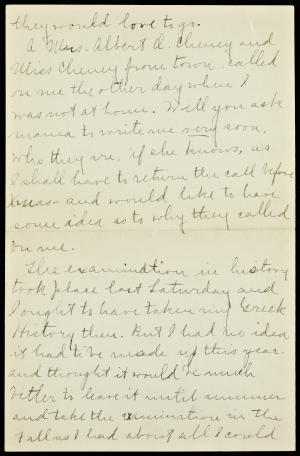 they would love to go.
A Mrs. Albert O. Cheney and
Miss Cheney from town called
on me the other day when I
was not at home. Will you ask
mama to write me very soon,
who they are, if she knows, as
I shall have to return the call before
Xmas - and would like to have
some idea as to why they called
on me.
The examination in history
took place last Saturday and
I ought to have taken my Greek
History then. But I had no idea
it had to be made up this year.
and thought it would be much
better to leave it until summer
and take the examination in the
Fall as I had about all I could